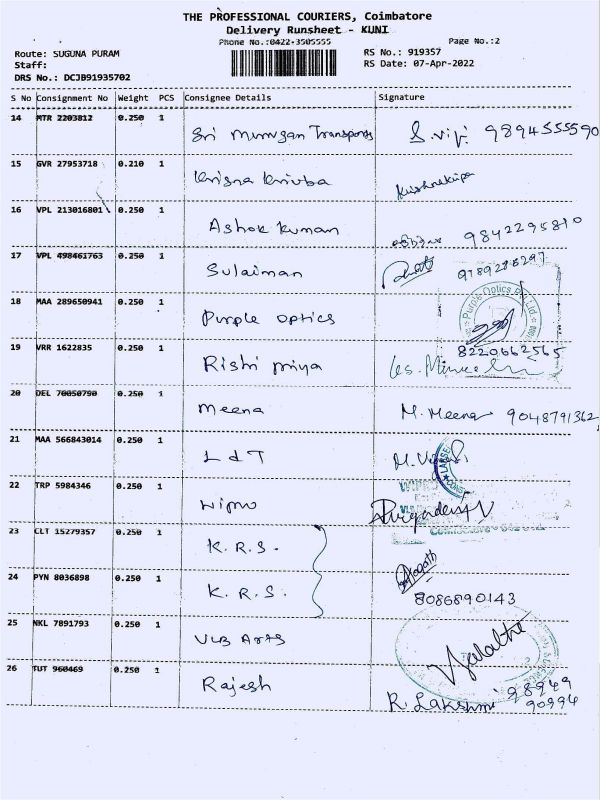 THE PROFESSIONAL COURIERS, Coimbatore
Delivery Runsheet - KUNI
Phone No.:0422-3505555 Page No.:2
Route: SUGUNA PURAM RS No.: 919357
Staff: RS Date: 07-Apr-2022
DRS No.: DCJB91935702
S No Consignment No Weight PCS Consignee Details Signature
14 MTR 2203812 0.250 1 Sri Murugan Transports S. 9894555590
15 GVR 27953718 0.210 1 Krisna
16 VPL 213016801 0.250 1 Ashok Kuman 9842295810
17 VPL 498461763 0.250 1 Sulaiman
18 MAA 289650941 0.250 1 Purple Optics Purple Optics Pvt Ltd
19 VRR 1622835 0.250 1 Rishi Priya 8220662565
20 DEL 70050790 0.250 1 Meena M. Meena 9048791362
21 MAA 566843014 0.250 1 L & T M.
22 TRP 5984346 0.250 1 Wipro
23 CLT 15279357 0.250 1 K.R.S.
24 PYN 8036898 0.250 1 K.R.S. 8086890143
25 NKL 7891793 0.250 1 VLB Arts
26 TUT 960469 0.250 1 Rajesh R. Lakshmi 98949
90994